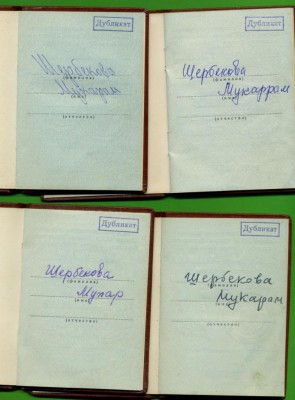 Дубликат
Шербекова
(фамилия)
Мукарам
(имя)
(отчество)
Дубликат
Шербекова
(фамилия)
Мукаррам
(имя)
(отчество)
Дубликат
Шербекова
(фамилия)
Мупар
(имя)
(отчество)
Дубликат
Шербекова
(фамилия)
Мукарам
(имя)
(отчество)